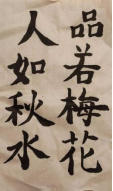 品若梅花
人如秋水